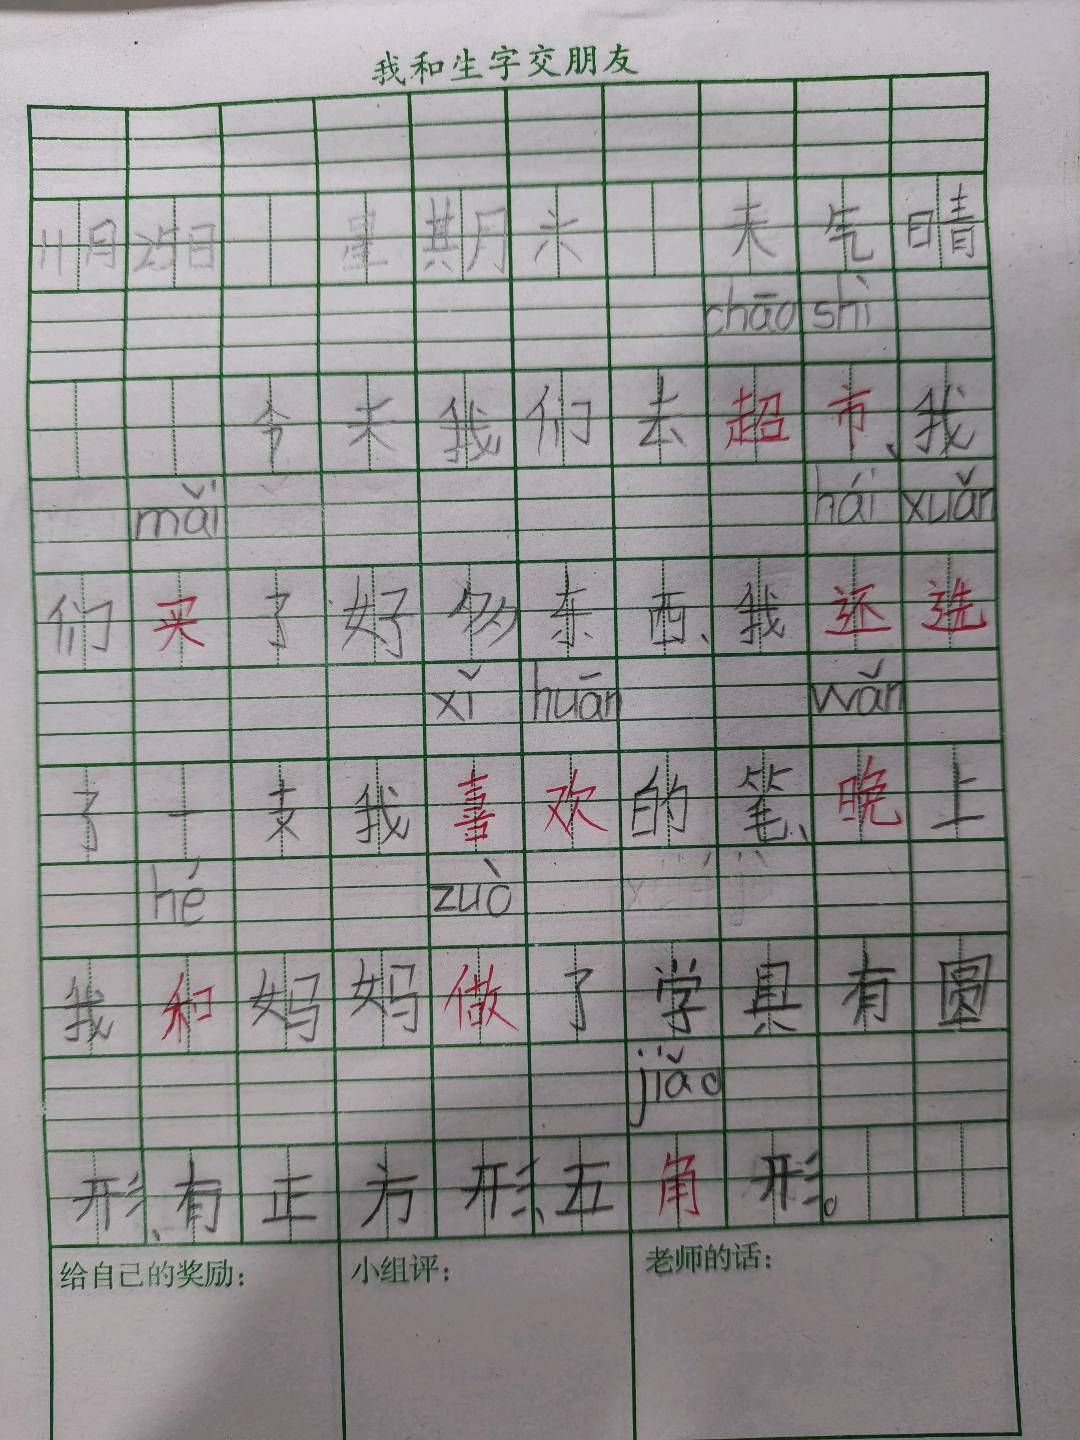 我和生字交朋友
11月25日 星其月六 天气晴
chāo shì
今天我们去超市、我
mǎi hái xuǎn
们买了好多东西、我还选
xǐ huān wǎn
了一支我喜欢的笔、晚上
hé zuò
我和妈妈做了学具有圆
jiǎo
形、有正方形、五角形。
给自己的奖励： 小组评： 老师的话：